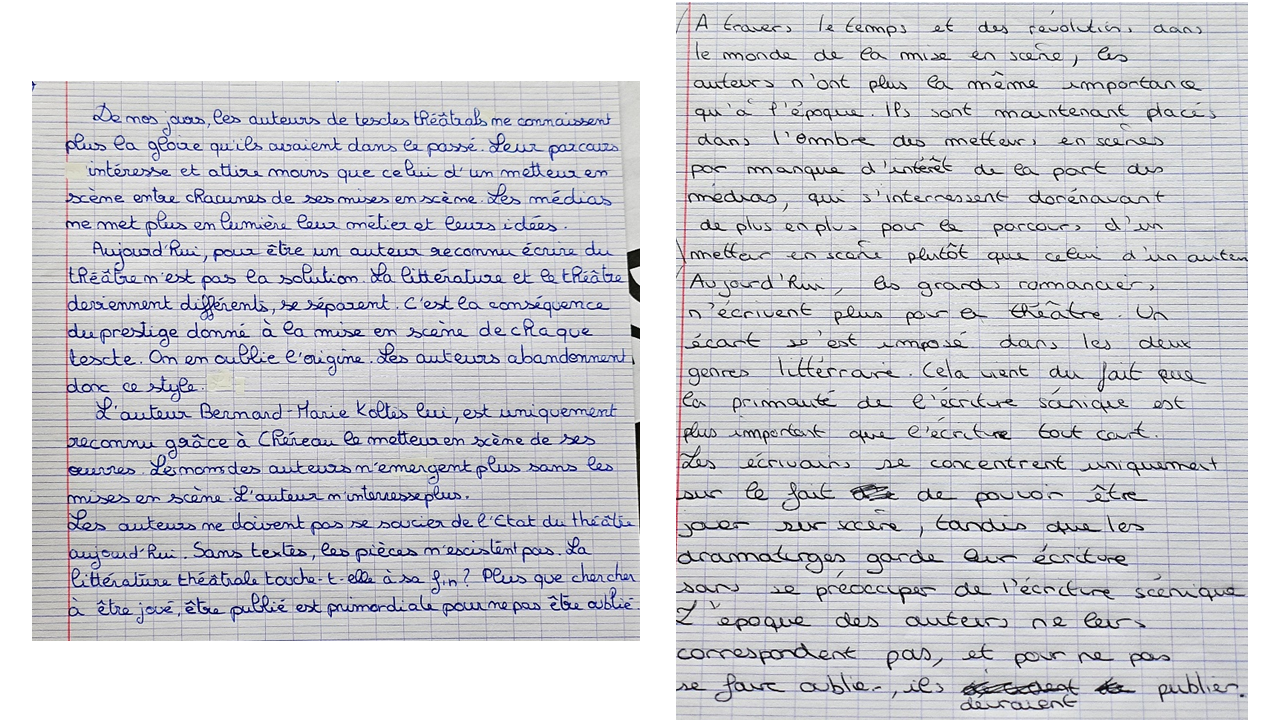 De nos jours, les auteurs de textes théâtrals ne connaissent
plus la gloire qu'ils avaient dans le passé. Leur parcours
intéresse et attire moins que celui d'un metteur en
scène entre chacunes de ses mises en scène. Les médias
ne met plus en lumière leur métier et leurs idées.
Aujourd'hui, pour être un auteur reconnu écrire du
théâtre n'est pas la solution. La littérature et le théâtre
deviennent différents, se séparent. C'est la conséquence
du prestige donné à la mise en scène de chaque
texte. On en oublie l'origine. Les auteurs abandonnent
donc ce style.
L'auteur Bernard-Marie Koltès lui, est uniquement
reconnu grâce à Chéreau le metteur en scène de ses
œuvres. Les noms des auteurs n'émergent plus sans les
mises en scène. L'auteur n'interresse plus.
Les auteurs ne doivent pas se soucier de l'Etat du théâtre
aujourd'hui. Sans textes, les pièces n'existent pas. La
littérature théâtrale touche-t-elle à sa fin ? Plus que chercher
à être joué, être publié est primordiale pour ne pas être oublié
A travers le temps et des révolutions dans
le monde de la mise en scène, les
auteurs n'ont plus la même importance
qu'à l'époque. Ils sont maintenant placés
dans l'Ombre des metteurs en scènes
par manque d'intérêt de la part des
médias, qui s'interressent dorénavant
de plus en plus pour le parcours d'un
metteur en scène plutôt que celui d'un auteur
Aujourd'hui, les grands romanciers
n'écrivent plus pour le théâtre. Un
écart s'est imposé dans les deux
genres littérraire. Cela vient du fait que
la primauté de l'écriture sénique est
plus important que l'écriture tout court.
Les écrivains se concentrent uniquement
sur le fait de pouvoir être
jouer sur scène, tandis que les
dramaturges garde leur écriture
sans se préoccuper de l'écriture scénique
L'époque des auteurs ne leurs
correspondent pas, et pour ne pas
se faire oublier, ils devraient publier.